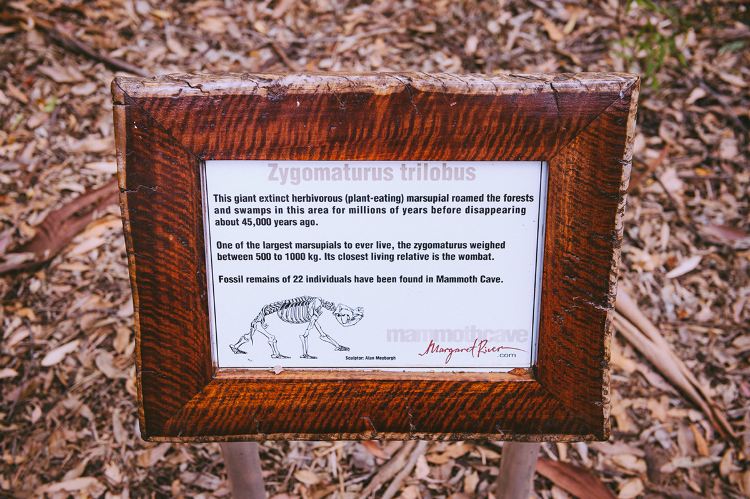 Zygomaturus trilobus
This giant extinct herbivorous (plant-eating) marsupial roamed the forests
and swamps in this area for millions of years before disappearing
about 45,000 years ago.
One of the largest marsupials to ever live, the zygomaturus weighed
between 500 to 1000 kg. Its closest living relative is the wombat.
Fossil remains of 22 individuals have been found in Mammoth Cave.
mammothcave
Sculptor: Alan Meuburgh
Margaret River.com